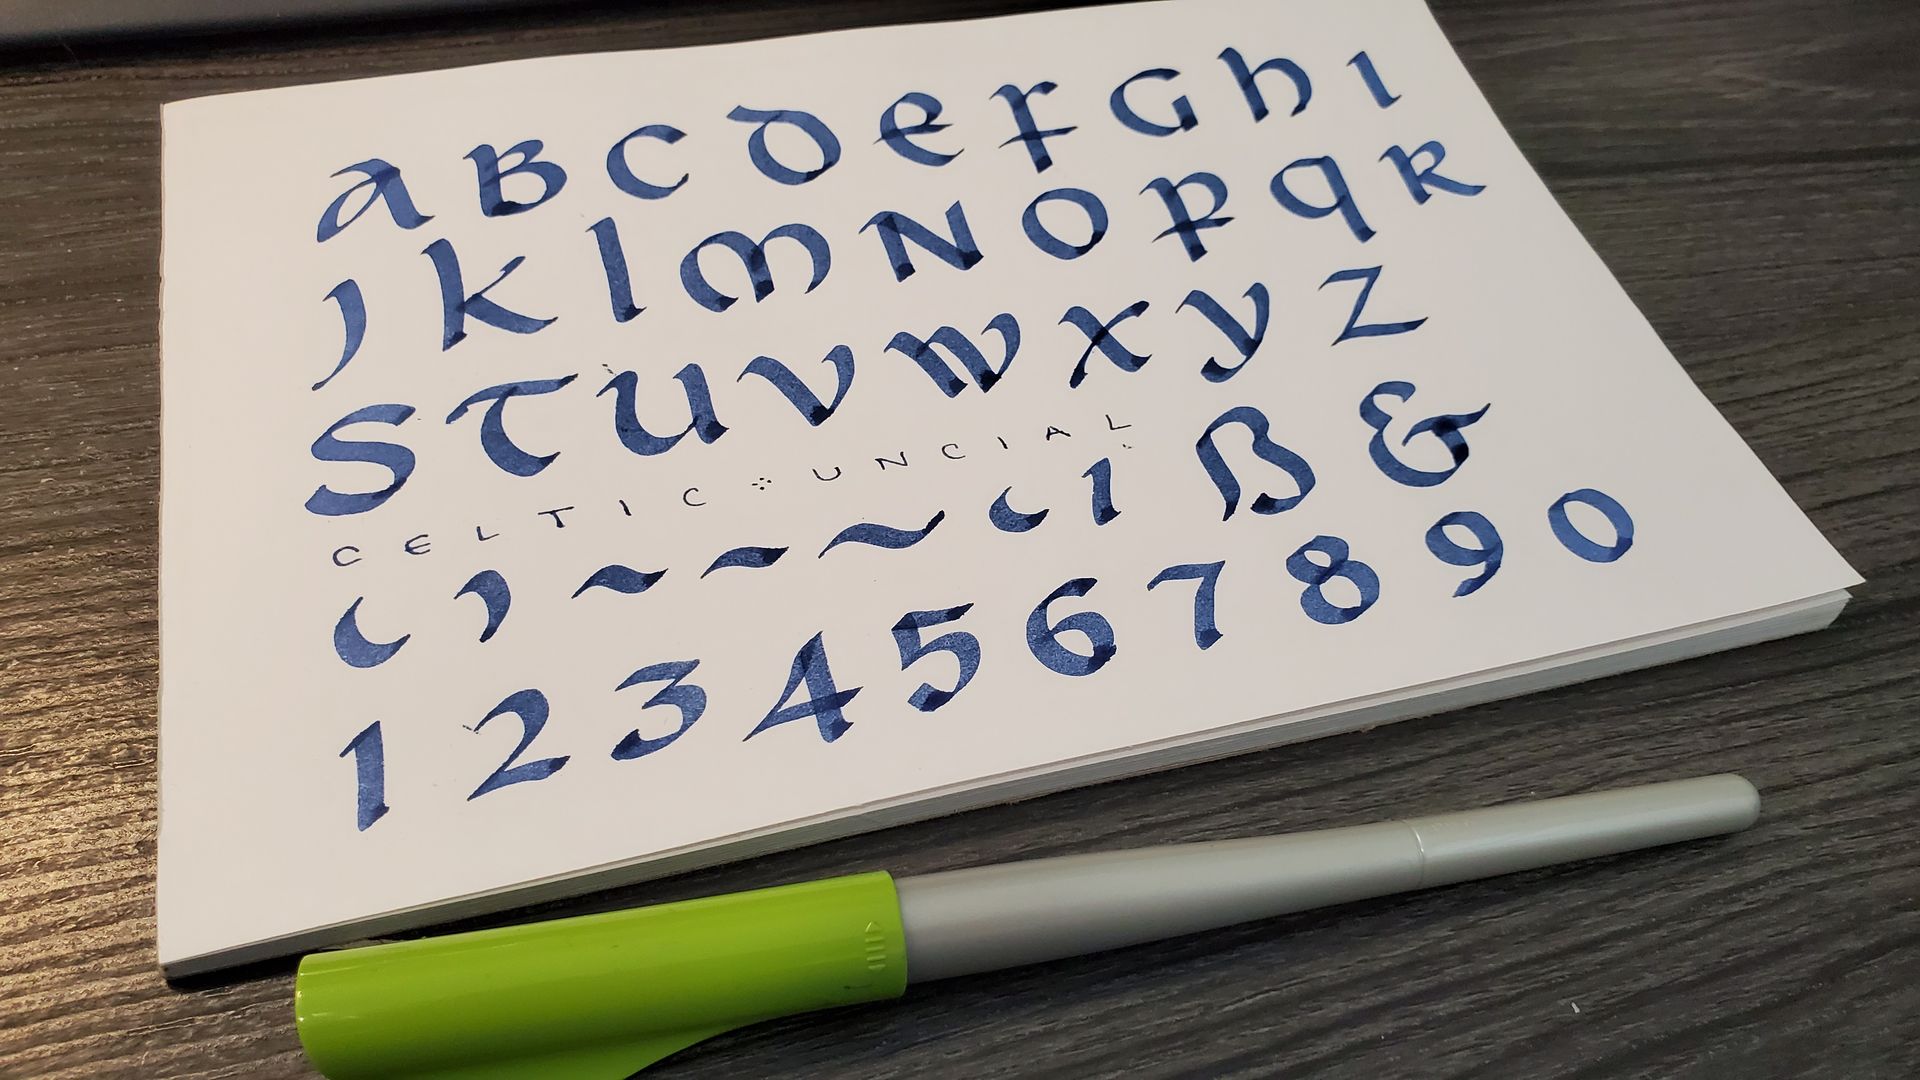 A B C D E F G H I
J K L M N O P Q R
S T U V W X Y Z
CELTIC ⁘ UNCIAL
ß &
1 2 3 4 5 6 7 8 9 0